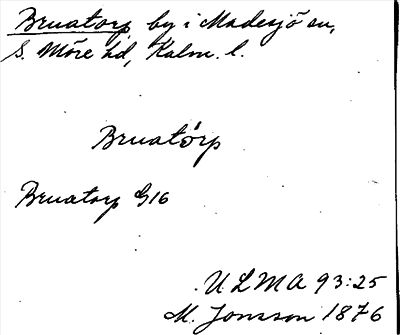 Bruatorp by i Madesjö sn,
S. Möre hd, Kalm. l.
Bruatórp
Bruatorp G16
ULMA 93:25
M. Jonsson 1876